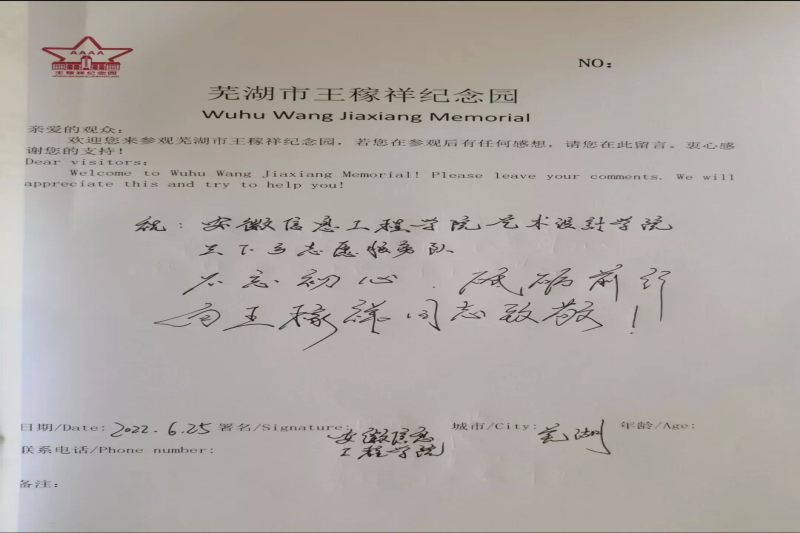 王稼祥纪念园
NO:
芜湖市王稼祥纪念园
Wuhu Wang Jiaxiang Memorial
亲爱的观众:
欢迎您来参观芜湖市王稼祥纪念园,若您在参观后有任何感想,请您在此留言。衷心感
谢您的支持!
Dear visitors:
Welcome to Wuhu Wang Jiaxiang Memorial! Please leave your comments. We will
appreciate this and try to help you!
祝:安徽信息工程学院艺术设计学院
三下乡志愿服务队
不忘初心.砥砺前行
向王稼祥同志致敬!
日期/Date: 2022.6.25 署名/Signature: 安徽信息 城市/City: 芜湖 年龄/Age:
联系电话/Phone number: 工程学院
备注: